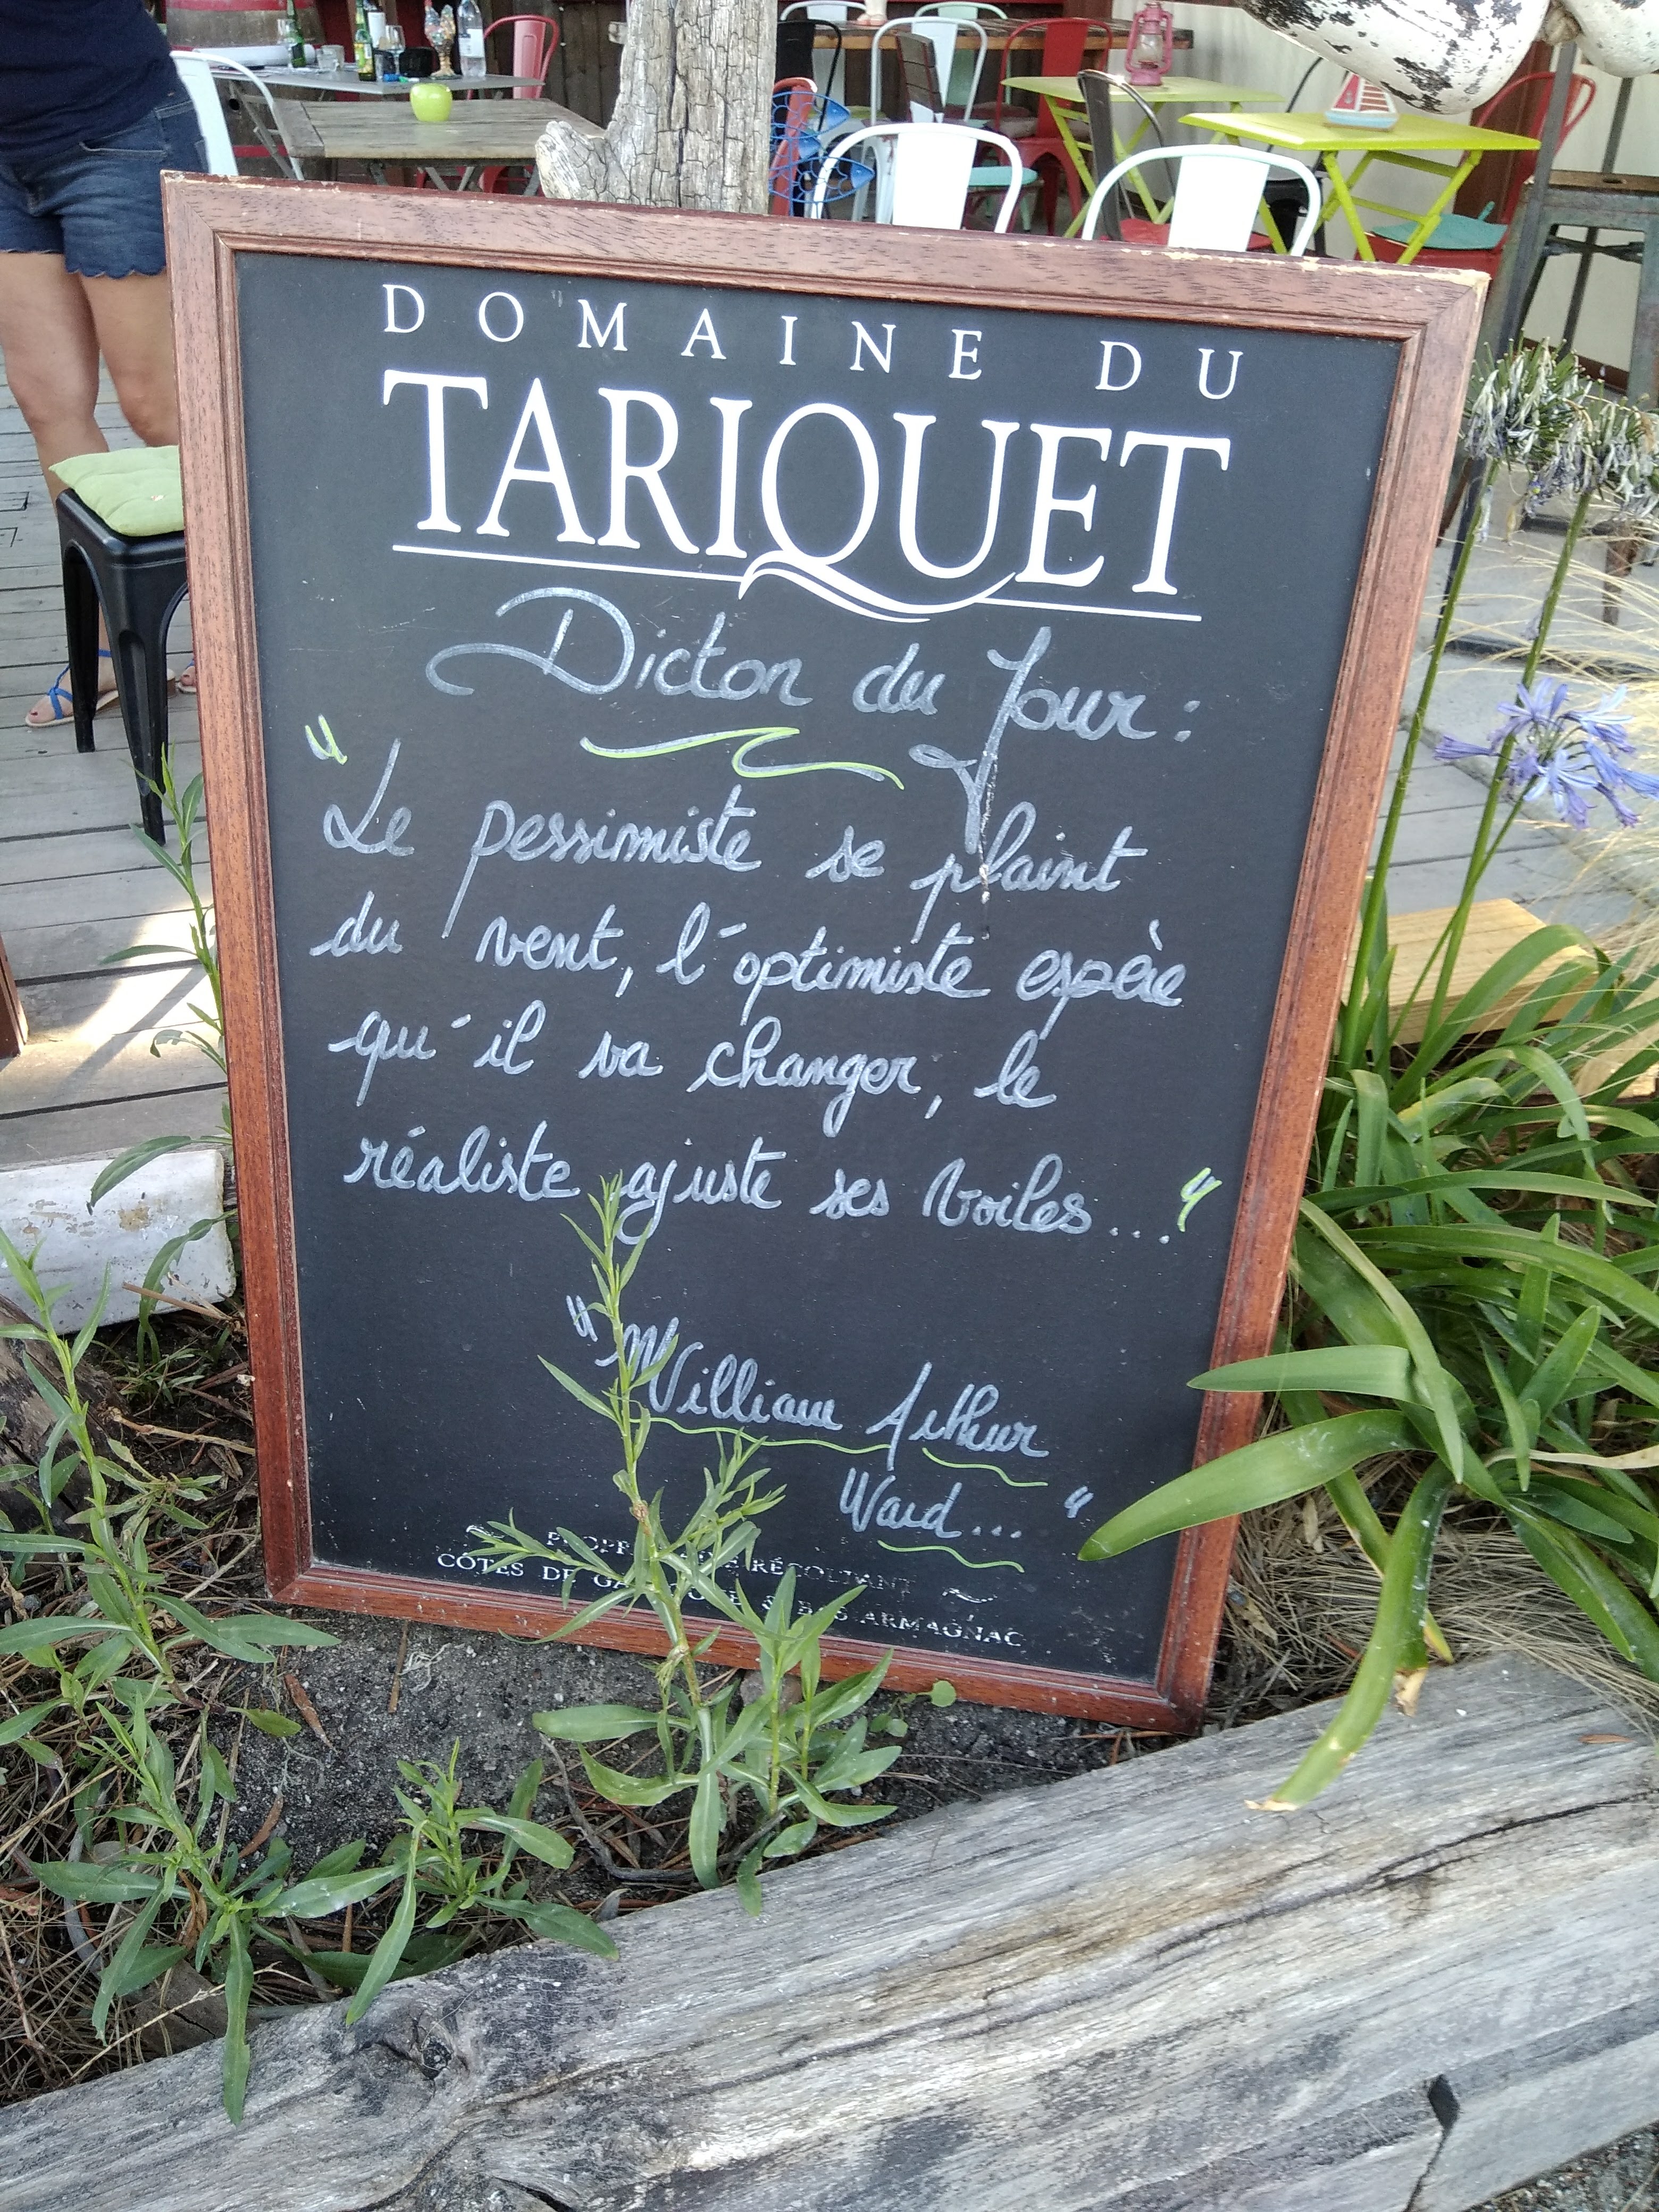 DOMAINE DU
TARIQUET
Dicton du Jour :
"Le pessimiste se plaint
du vent, l'optimiste espère
qu'il va changer, le
réaliste ajuste ses voiles..."
"William Arthur
Ward..."
RÉCOLTANT
CÔTES DE & BAS ARMAGNAC